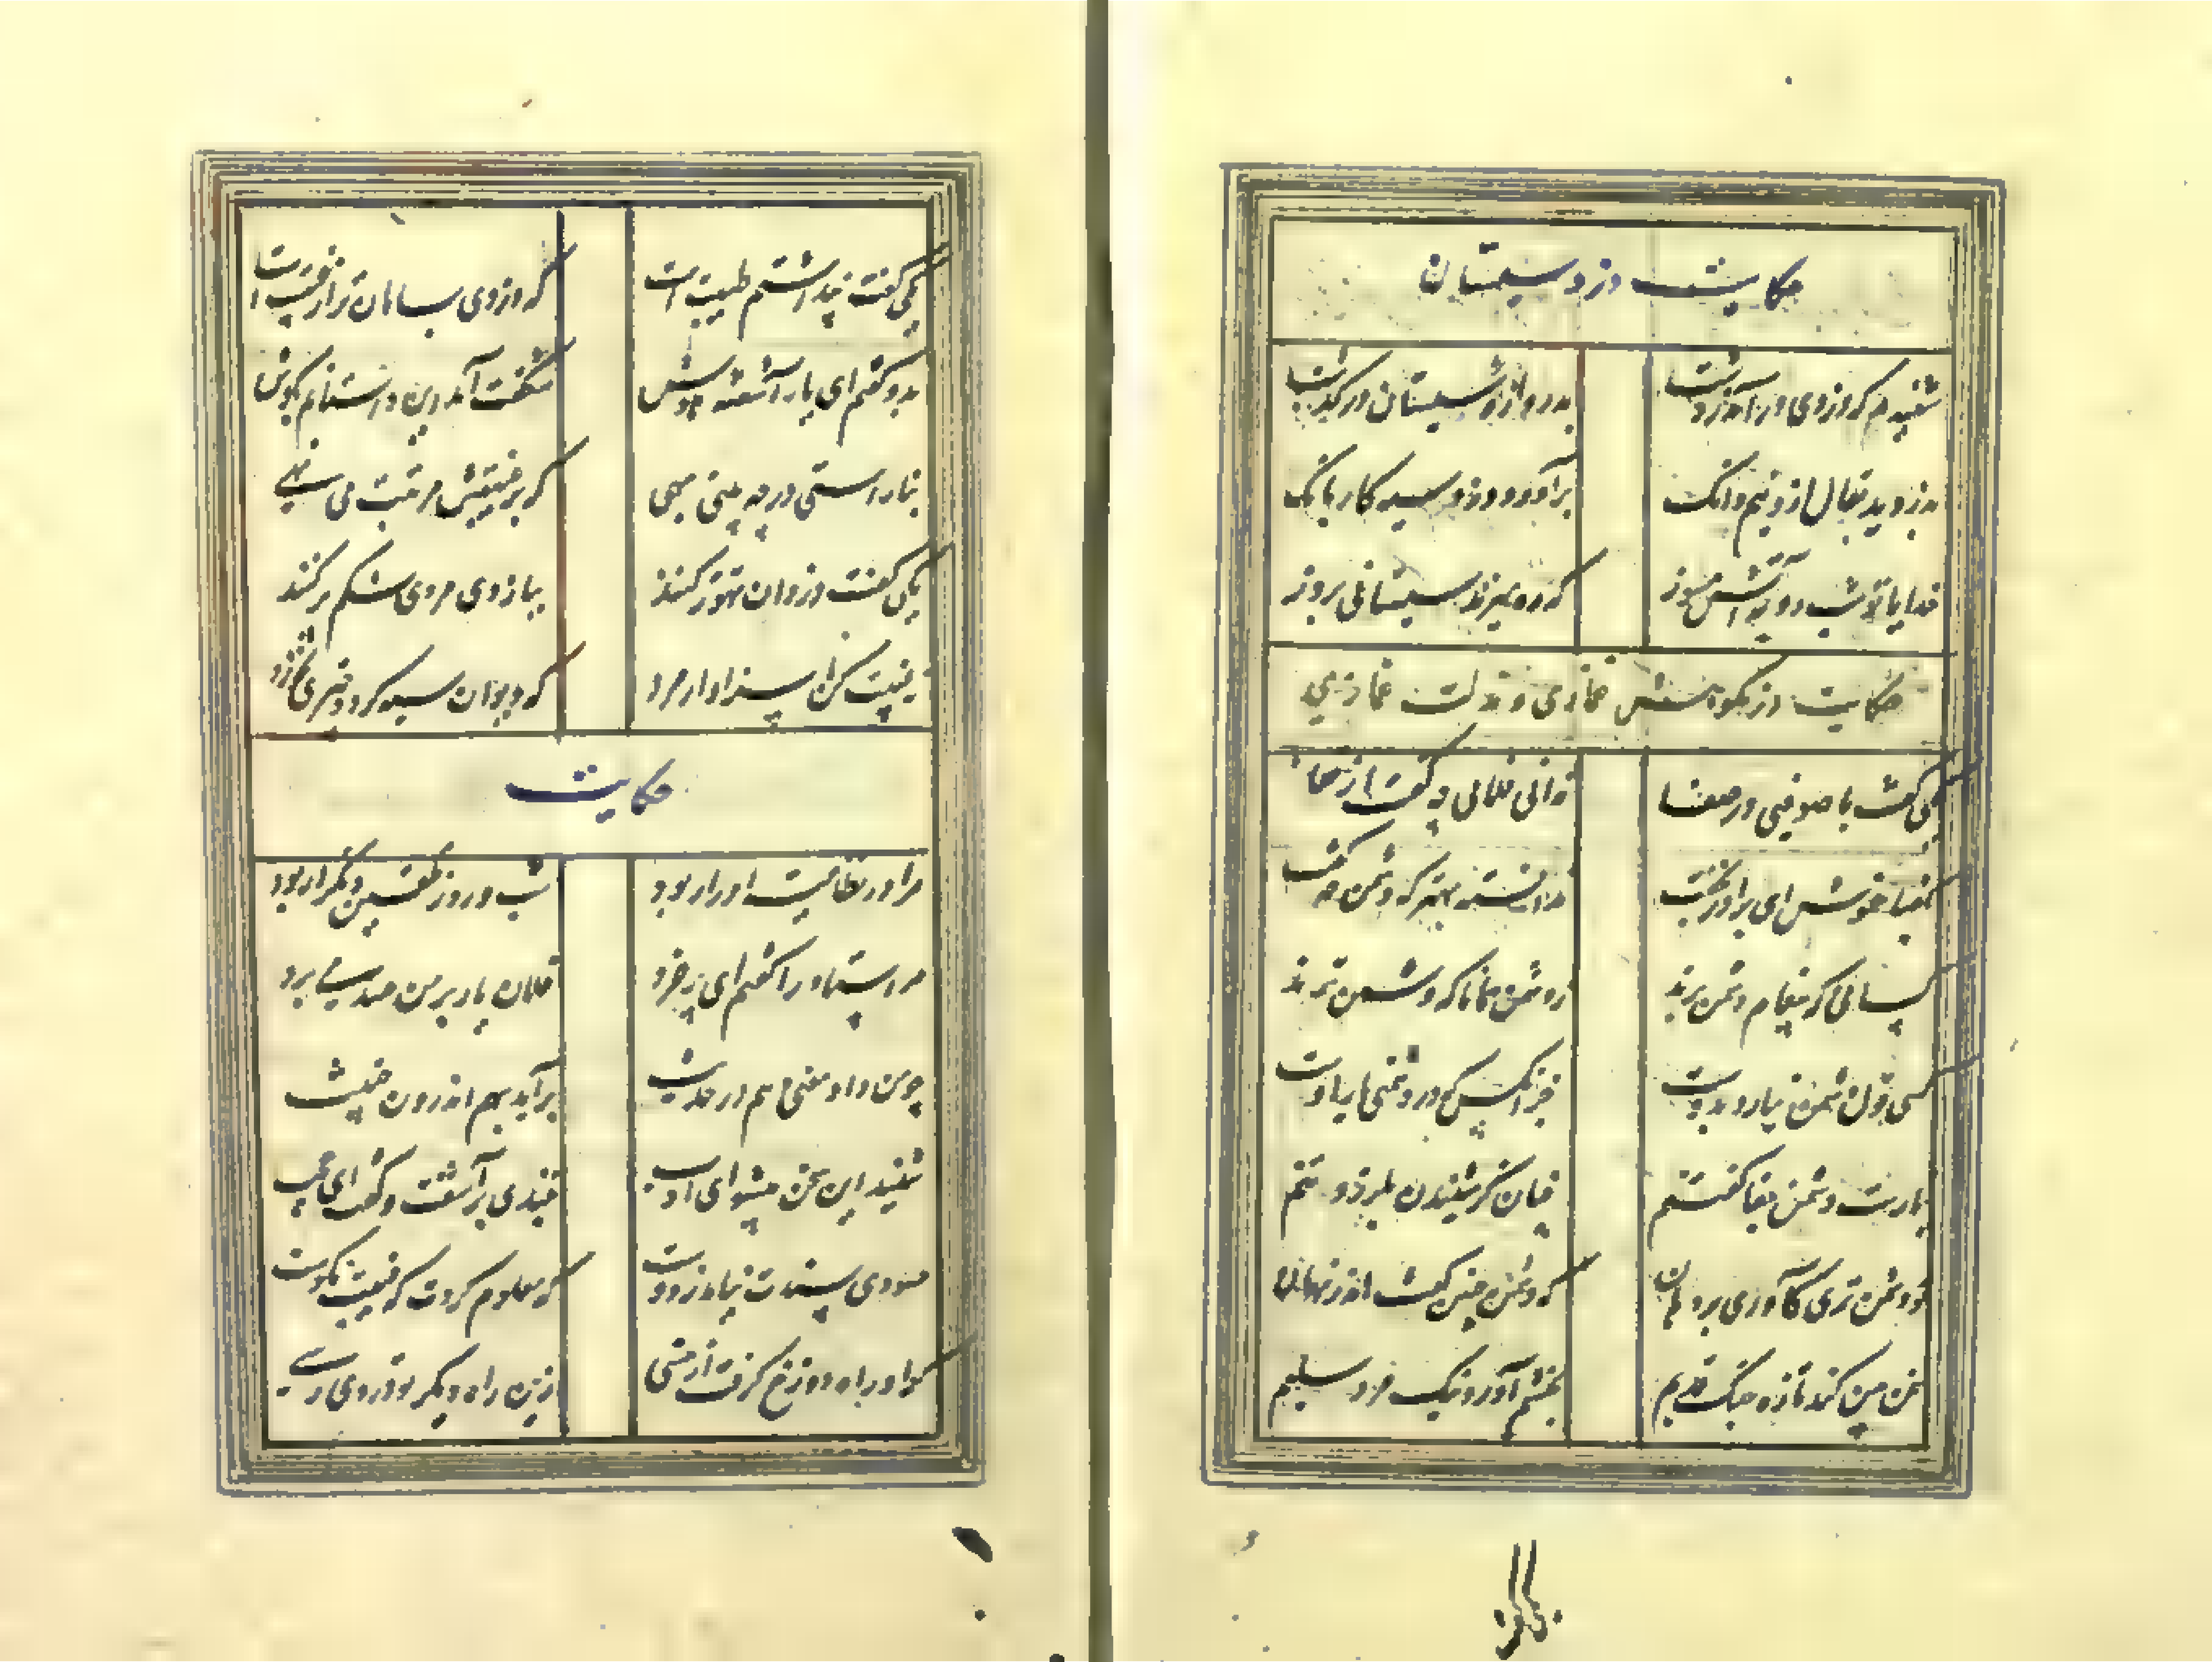 حکایت دزد سیستان
شنیدم که دزدی درآمد ز دشت بدروازه سیستان در گذشت
بدزدید بقال ازو نیم دانگ برآورد دزد سیه کار بانگ
خدایا تو شب رو به آتش مسوز که ره میزند سیستانی بروز
حکایت در نکوهش غمازی و مذلت غمازی
یکی گفت با صوفیی در صفا ندانی فلانی چه گفت از قفا
بگفتا خموش ای برادر بخفت ندانسته بهتر که دشمن چه گفت
کسانی که پیغام دشمن برند ز دشمن همانا که دشمن ترند
کسی قول دشمن نیارد بدوست جز آنکس که در دشمنی یار اوست
نیارست دشمن جفا گفتنم چنان کز شنیدن بلرزد تنم
تو دشمن تری کآوری بر دهان که دشمن چنین گفت اندر نهان
سخن چین کند تازه جنگ قدیم بخشم آورد نیک مرد سلیم
یکی گفت پنداشتم طیبت است که دزدی بسامان تر از غیبت است
بدو گفتم ای یار آشفته هوش شگفت آمد این داستانم بگوش
بناراستی در چه بینی بهی که بر غیبتش مرتبت می نهی
بلی گفت دزدان تهور کنند ببازوی مردی شکم پر کنند
ز غیبت چه میخواهد آن ساده مرد که دیوان سیه کرد و چیزی نخورد
حکایت
مرا در نظامیه ادرار بود شب و روز تلقین و تکرار بود
مر استاد را گفتم ای پر خرد فلان یار بر من حسد می برد
چو من داد معنی دهم در حدیث برآید بهم اندرون خبیث
شنید این سخن پیشوای ادب بتندی برآشفت و گفت ای عجب
حسودی پسندت نیامد ز دوست که معلوم کردت که غیبت نکوست
گر او راه دوزخ گرفت از خسی ازین راه دیگر تو در وی رسی